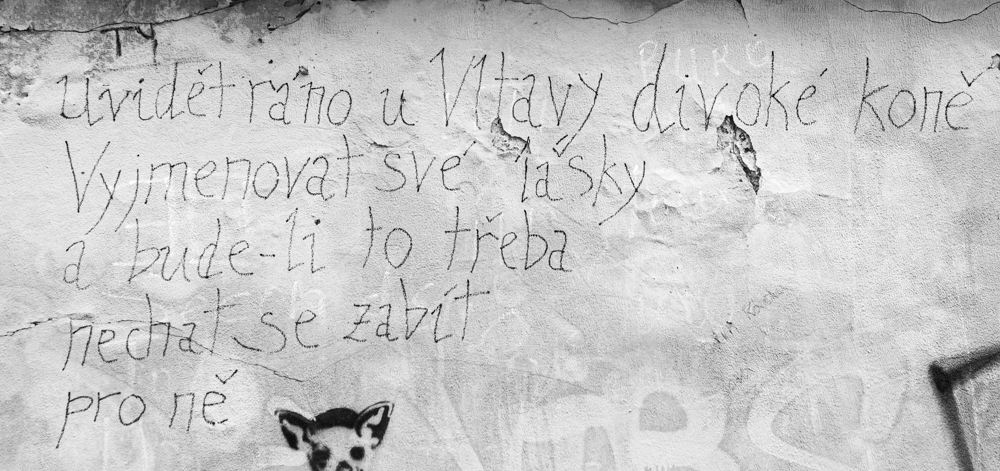 TY
PUKO
uvidět ráno u Vltavy divoké koně
Vyjmenovat své lásky
a bude-li to třeba
nechat se zabít
pro ně